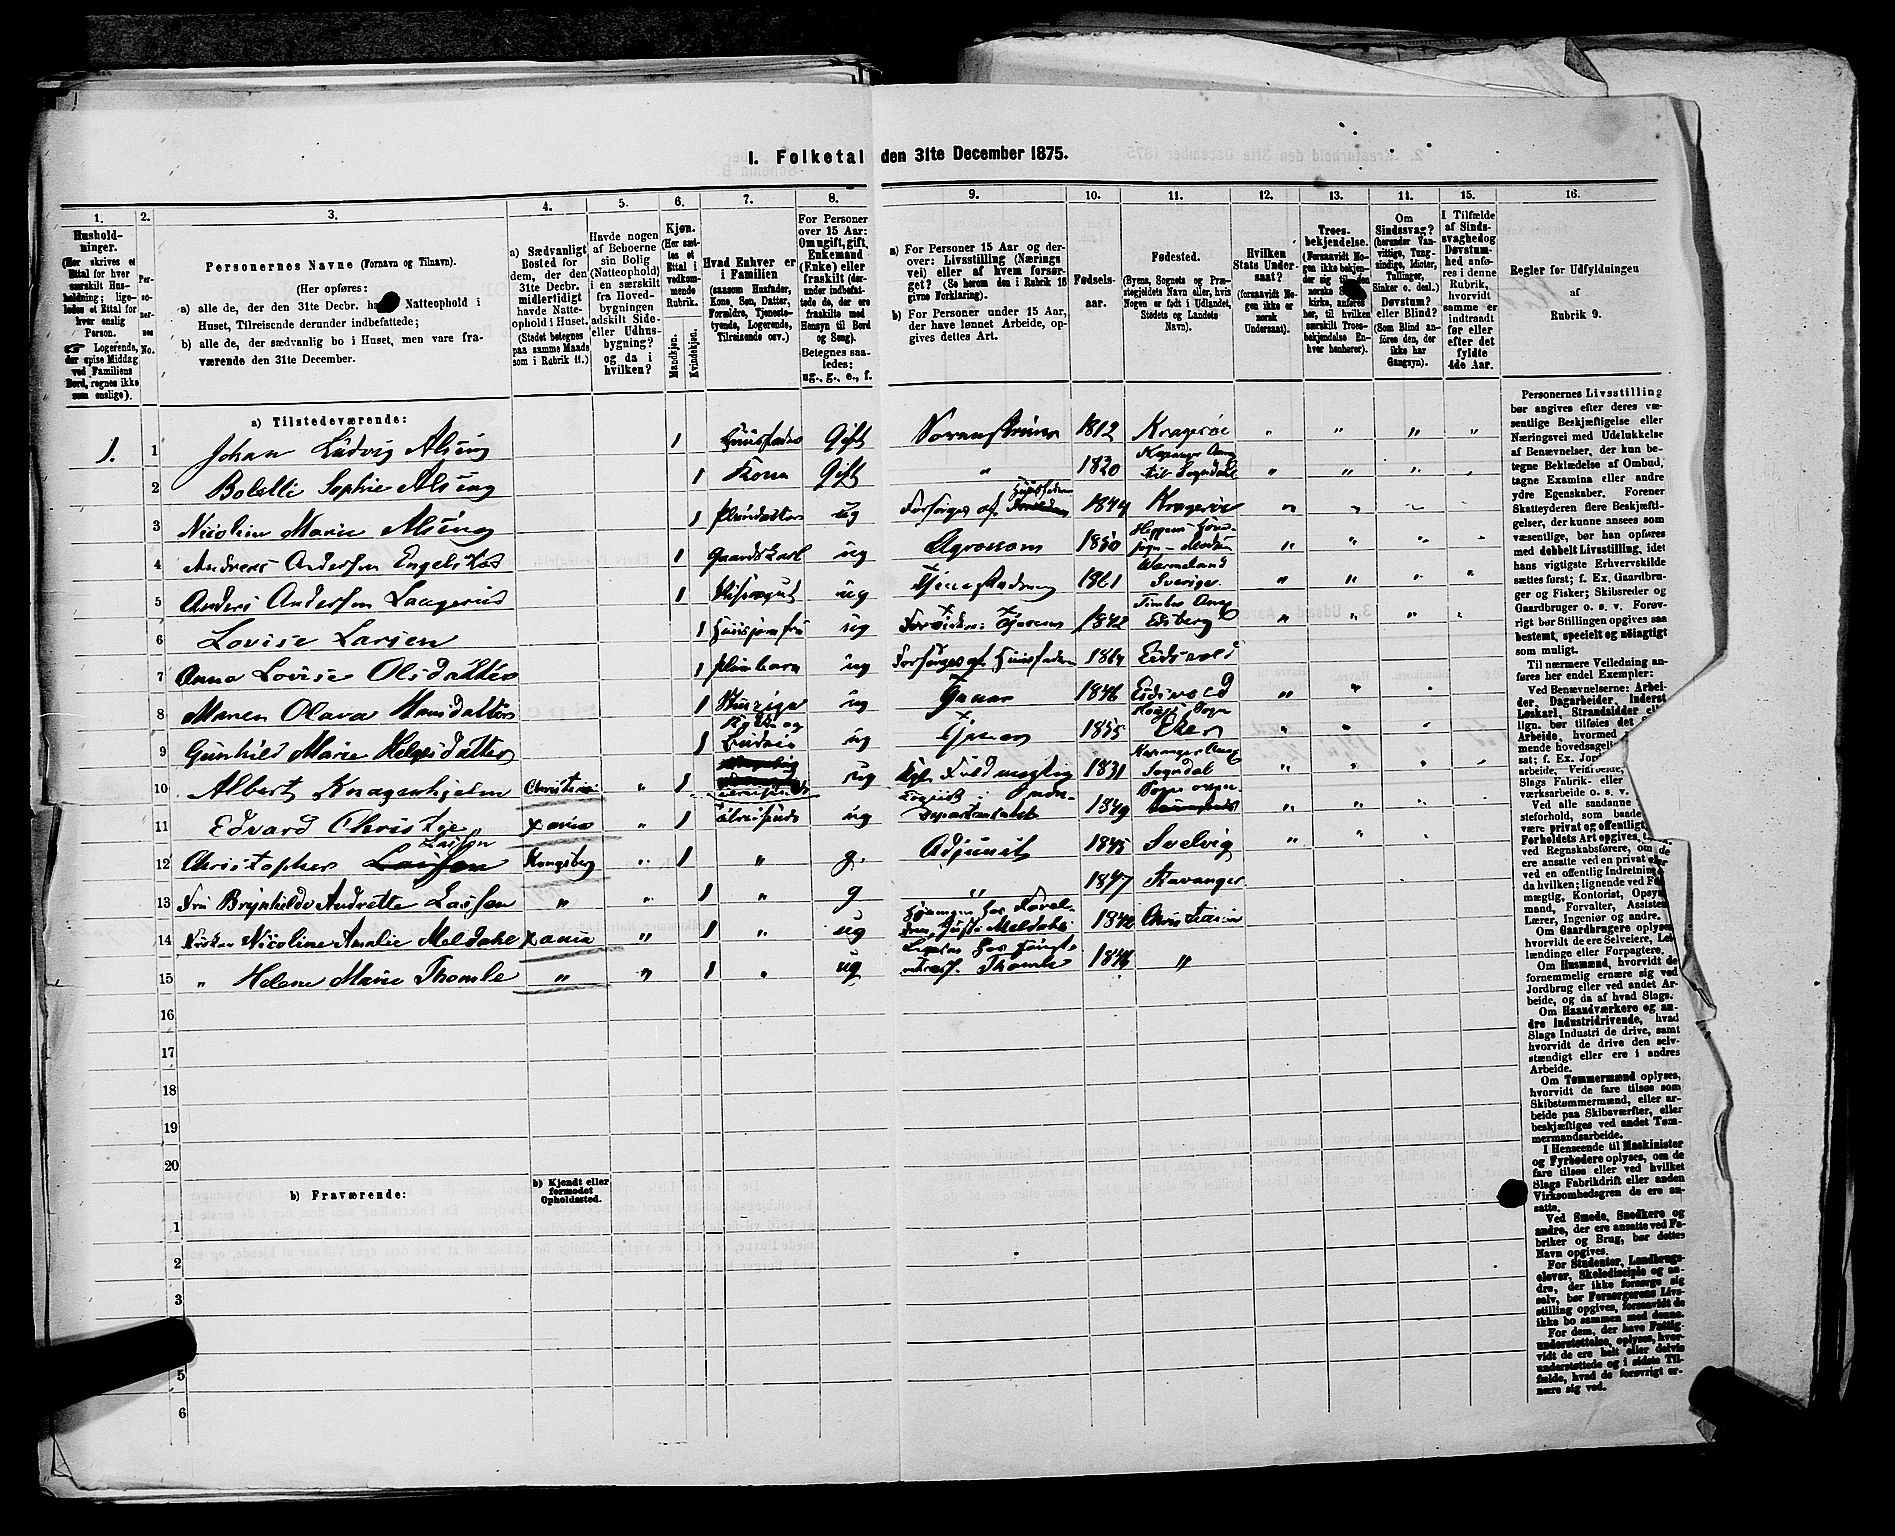 1. Folketal den 31te December 1875.
1. 2. 3. 4. 5. 6. 7. 8. 9. 10. 11. 12. 13. 14. 15. 16.
Hushold-
ninger.
(Her skrives et
Ettal for hver
særskilt Hus-
holdning; lige-
ledes et Ettal for
hver enslig
Person.
Logerende,
der spise Middag
ved Familiens
Bord, regnes ikke
som enslige).
Per-
so-
ner-
nes
No.
Personernes Navne (Fornavn og Tilnavn).
(Her opføres:
a) alle de, der den 31te Decbr. Natteophold i
Huset, Tilreisende derunder indbefattede;
b) alle de, der sædvanlig bo i Huset, men vare fra-
værende den 31te December.
a) Sædvanligt
Bosted for
dem, der den
31te Decbr.
midlertidigt
havde Natte-
ophold i Huset.
(Stedet betegnes
paa samme Maade
som i Rubrik 11.)
Havde nogen
af Beboerne
sin Bolig
(Natteophold)
i en særskilt
fra Hoved-
bygningen
adskilt Side-
eller Udhus-
bygning?
og da i
hvilken?
Kjøn.
(Her sæt-
tes et
Ettal i
vedkom-
mende
Rubrik.
Mandkjøn.
Kvindekjøn.
Hvad Enhver er
i Familien
(saasom Husfader,
Kone, Søn, Datter,
Forældre, Tjeneste-
tyende, Logerende,
Tilreisende osv.)
For Personer
over 15 Aar:
Om ugift, gift,
Enkemand
(Enke) eller
fraskilt (der-
under indbefat-
tede de, der ere
fraskilte med
Hensyn til Bord
og Seng).
Betegnes saa-
ledes:
ug., g., e., f.
a) For Personer 15 Aar og der-
over: Livsstilling (Nærings
vei) eller af hvem forsør-
get? (Se herom den i Rubrik 16
givne Forklaring).
b) For Personer under 15 Aar,
der have lønnet Arbeide, op-
gives dettes Art.
Fødsels-
aar.
Fødested.
(Byens, Sognets og Præ-
stegjeldets Navn eller, hvis
Nogen er født i Udlandet,
Stedets og Landets
Navn).
Hvilken
Stats Under-
saat?
(foraaavidt No-
gen ikke er
norsk
Undersaat).
Troes-
bekjendelse.
(Forsaavidt No-
gen ikke bekjen-
der sig til den
norske
kirke, anføres
her, til hvilken
særskilt Troes-
bekjendelse En-
hver henhører).
Om
Sindssvag?
(herunder Van-
vittige, Tung-
sindige, Idioter,
Tullinger,
Sinker o. desl.)
Døvstum?
eller Blind?
(Som Blind an-
føres den, der
ikke har
Gangsyn).
I Tilfælde
af Sinds-
svaghed og
Døvstum-
hed anfø-
res i denne
Rubrik,
hvorvidt
samme er
indtraadt
før eller
efter det
fyldte
4de Aar.
Regler for Udfyldningen
af
Rubrik 9.
a) Tilstedeværende:
1. 1 Johan Ludvig Alsing 1 Huusfader Gift Sorenskriver 1812 Kragerøe
2 Bolette Sophie Alsing 1 Kone Gift " 1820 Sogndal
3 Nicoline Marie Alsing 1 Pleiedatter ug Forsørges af Huusfaderen 1844 Kragerøe
4 Andreas Andersen 1 Gaardskarl ug 1850
5 Anders Andersen 1 ug 1861 Wermeland Sverige
6 Lovise Larsen 1 Huusjomfru ug 1842 Edsberg
7 Anna Lovise Olsdatter 1 Pleiebarn ug Forsørges af Huusfaderen 1864 Eidsvold
8 Maren Olava Hansdatter 1 ug 1846 Eidsvold
9 Gunhild Marie Helgesdatter 1 Kokke og Budeie ug 1855 Eker
10 Albert Knagenhjelm Christiania " 1 ug Kgl. Fuldmægtig 1831 Sogndal
11 Edvard Christie Xania " 1 tilreisende ug 1849
12 Christopher Lassen Kongsberg " 1 " g. Adjunct 1845 Svelvig
13 Fru Brynhilde Andrette Lassen " " 1 " g " 1847 Stavanger
14 Frøken Nicoline Amalie Meldahl Xania " 1 " ug Meldahl 1842 Christiania
15 " Helene Marie Thomle " " 1 " ug Thomle 1846 "
16
17
18
19
20
b) Fraværende:
b) Kjendt eller
formodet
Opholdssted.
1
2
3
5
6
Personernes Livsstilling
bør angives efter deres væ-
sentlige Beskjæftigelse eller
Næringsvei med Udelukkelse
af Benævnelser, der kun be-
tegne Beklædelse af Ombud,
tagne Examina eller andre
ydre Egenskaber. Forener
Skatteyderen flere Beskjæfti-
gelser, der kunne ansees som
væsentlige, bør han opføres
med dobbelt Livsstilling, idet
hans vigtigste Erhvervskilde
sættes først; f. Ex. Gaardbru-
ger og Fisker; Skibsreder og
Gaardbruger o. s. v. Forøv-
rigt bør Stillingen opgives saa
bestemt, specielt og nøiagtigt
som muligt.
Til nærmere Veiledning an-
føres her endel Exempler:
Ved Benævnelserne: Arbei-
der, Dagarbeider, Inderst
Løskarl, Strandsidder
lign. bør tilføies det
Arbeide, hvormed
mende hovedsageli
sat; f. Ex.
arbeide, Veiarbeide,
Slags Fabrik- eller
værksarbeide o. s. v.
Ved alle saadanne
steforhold, som baade
være privat og offentligt,
Forholdets Art opgives,
ved Regnskabsførere, om de
ere ansatte ved en privat eller
ved en offentlig Indretning,
da hvilken; lignende ved Fuld-
mægtig, Kontorist, Opsyns-
mand, Forvalter, Assistent,
Lærer, Ingeniør og andre.
Om Gaardbrugere oplyses,
hvorvidt de ere Selveiere, Lei-
lændinge eller Forpagtere.
Om Husmænd, hvorvidt de
fornemmelig ernære sig ved
Jordbrug eller ved andet Ar-
beide, og da af hvad Slags.
Om Haandværkere og an-
dre Industridrivende, hvad
Slags Industri de drive, samt
hvorvidt de drive den selv-
stændigt eller ere i andres
Arbeide.
Om Tømmermænd oplyses,
hvorvidt de fare tilsøs som
Skibstømmermænd, eller ar-
beide paa Skibsværfter, eller
beskjæftiges ved andet Tøm-
mermandsarbeide.
I Henseende til Maskinister
og Fyrbødere oplyses, om de
fare tilsøs eller ved hvilket
Slags Fabrikdrift eller anden
Virksomhedsgren de ere an-
satte.
Ved Smede, Snedkere og
andre, der ere ansatte ved Fa-
briker og Brug, bør dettes
Navn opgives.
For Studenter, Landbrugs-
elever, Skoledisciple og an-
dre, der ikke forsørge sig
selv, bør Forsørgerens Livs-
stilling opgives, forsaavidt de
ikke bo sammen med denne.
For dem, der have Fattig-
understøttelse, oplyses, hvor-
vidt de ere helt eller delvis
understøttede og i sidste Til-
fælde, hvad de forøvrigt er-
nære sig ved.